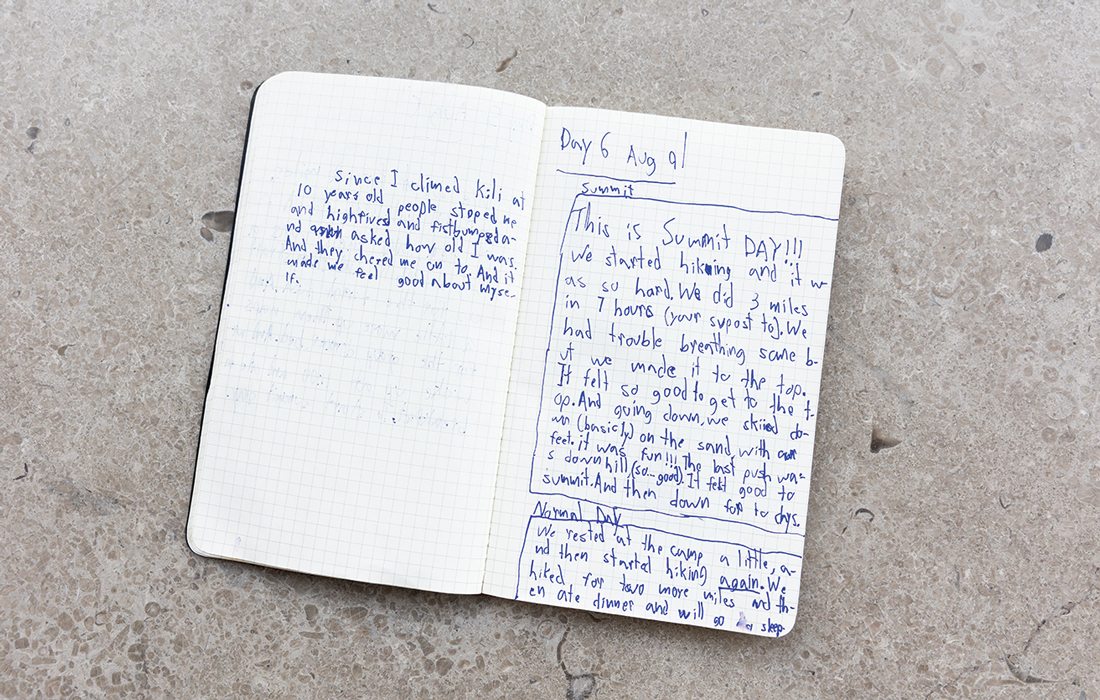 Since I climed Kili at
10 years old people stoped me
and highfived and fistbumped a-
nd asked how old I was.
And they chered me on to. And it
made me feel good about myse-
lf.
Day 6 Aug 9
Summit
This is Summit DAY!!!
We started hiking and it w-
as so hard. We did 3 miles
in 7 hours (your supost to). We
had trouble breathing some b-
ut we made it to the top.
It felt so good to get to the t-
op. And going down, we skiied do-
wn (basicly) on the sand, with our
feet. it was fun!!! The last push wa-
s downhill, (so... good). It felt good to
summit. And then down for to days.
Normal Day
We rested at the camp a little, a-
nd then started hiking again. We
hiked for two more miles and th-
en ate dinner and will go to sleep.